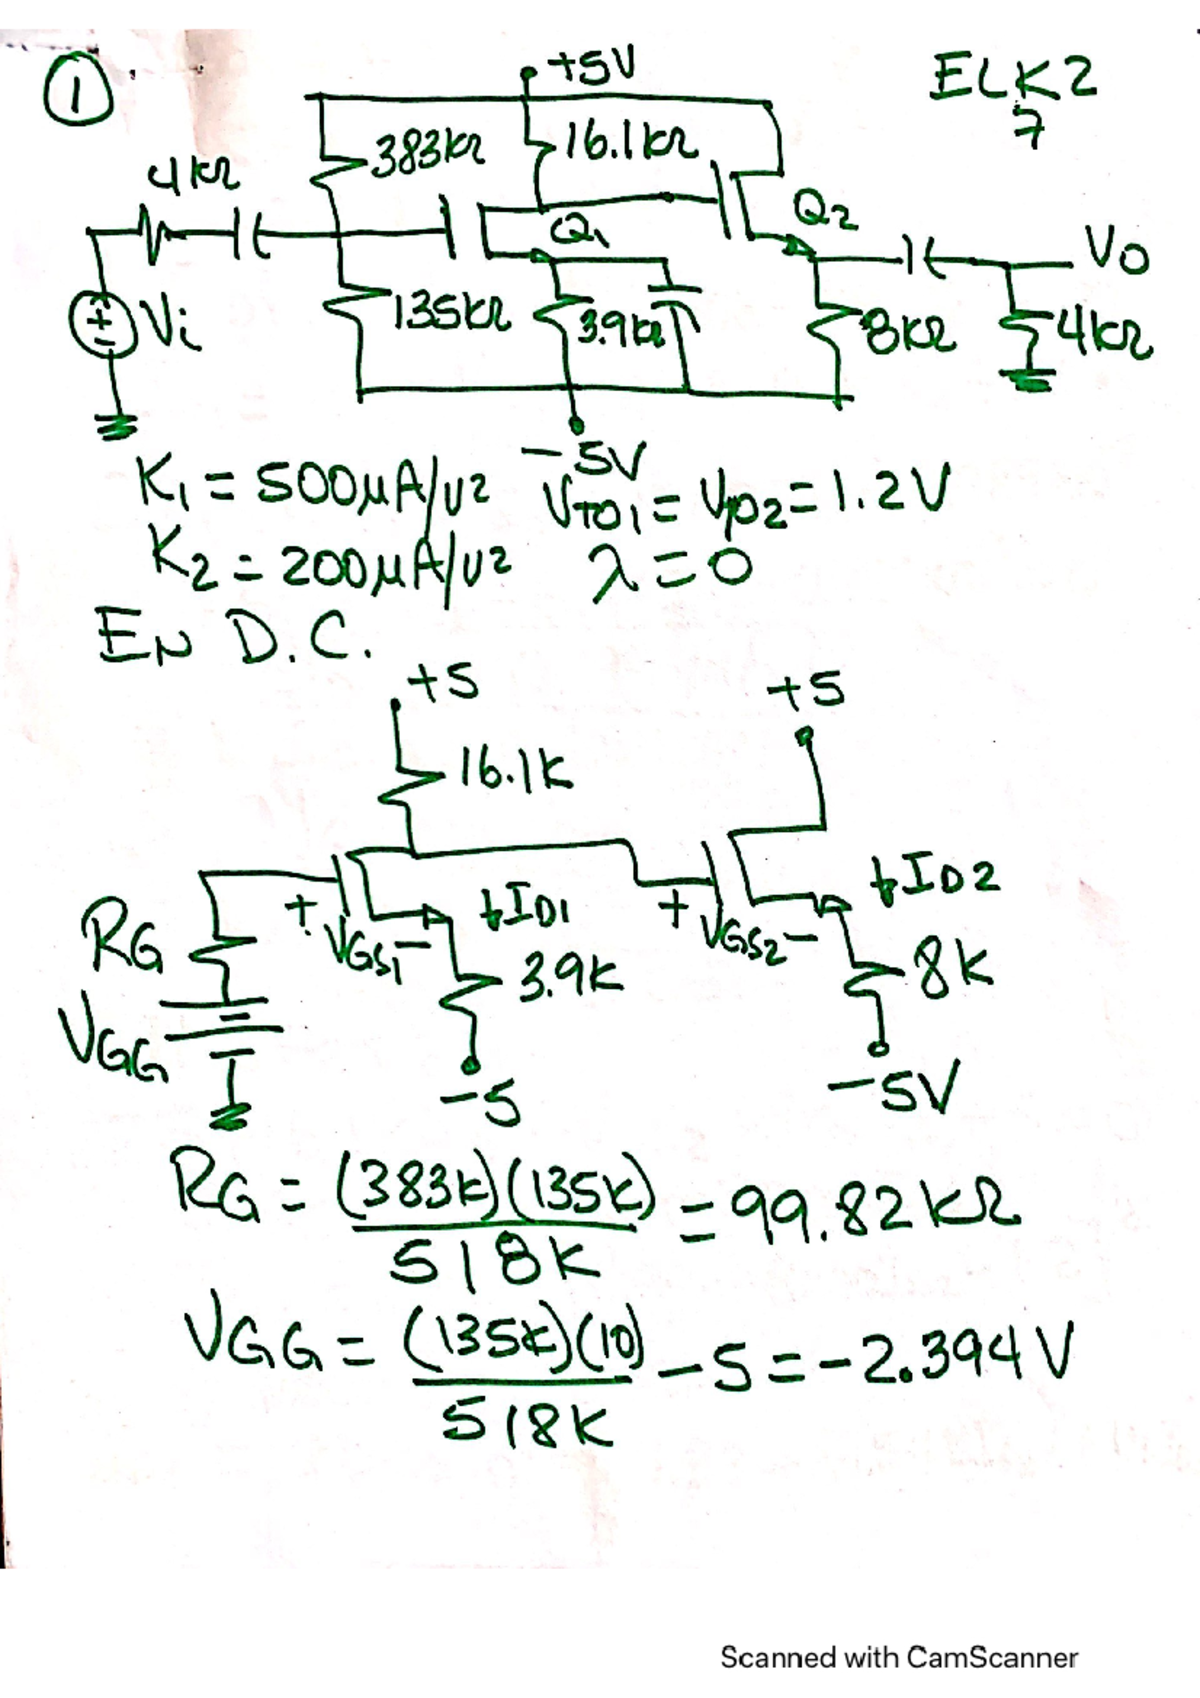 1
+5V
ELK2
7
4kΩ
383kΩ
16.1kΩ
Q1
Q2
Vo
Vi
135kΩ
3.9kΩ
8kΩ
4kΩ
-5V
K1 = 500μA/V2 VTO1 = VTO2 = 1.2V
K2 = 200μA/V2 λ = 0
EN D.C.
+5
+5
16.1K
RG
+ VGS1 -
↓ID1
+ VGS2 -
↓ID2
3.9K
8K
VGG
-5
-5V
RG = (383K)(135K) = 99.82kΩ
518K
VGG = (135K)(10) - 5 = -2.394V
518K
Scanned with CamScanner